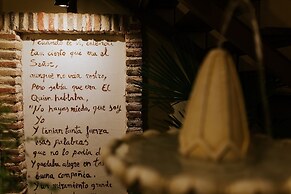 Y cuando lo oí, entendí
tan cierto que era el
Señor,
aunque no vía rostro,
Pero sabía que era El
Quien hablaba,
"No hayas miedo, que soy
Yo
Y tenían tanta fuerza
esas palabras
que no lo podía d
Y quedaba alegre en tan
buena compañía.
Y un miramiento grande